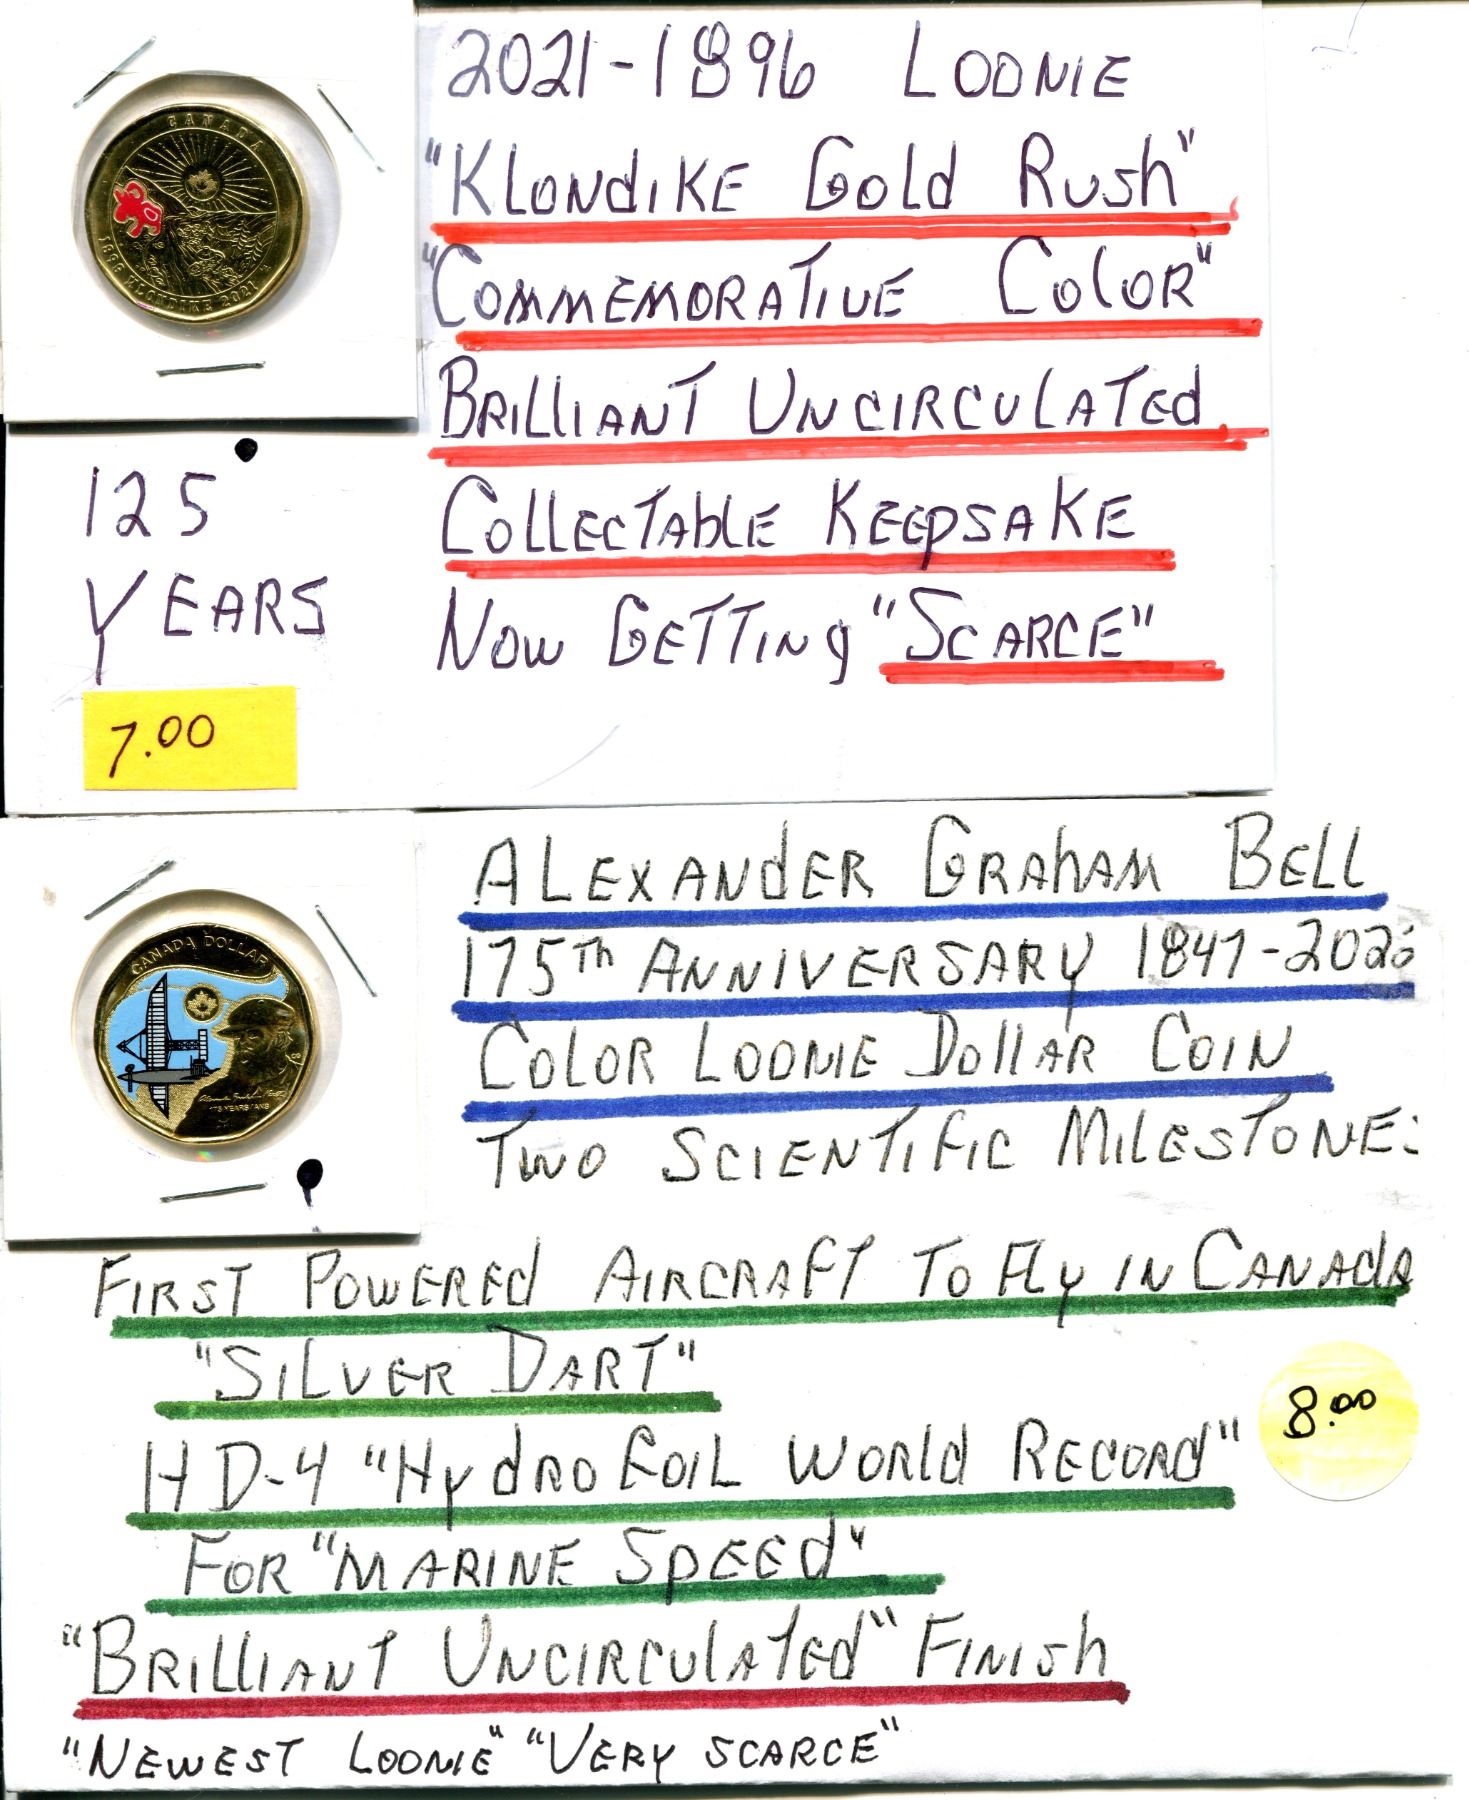 CANADA
1896 KLONDIKE 2021
2021-1896 LOONIE
"KLONDIKE GOLD RUSH"
"COMMEMORATIVE COLOR"
BRILLIANT UNCIRCULATED
COLLECTABLE KEEPSAKE
NOW GETTING "SCARCE"
125
YEARS
7.00
CANADA DOLLAR
175 YEARS/ANS
ALEXANDER GRAHAM BELL
175TH ANNIVERSARY 1847-2022
COLOR LOONIE DOLLAR COIN
TWO SCIENTIFIC MILESTONE:
FIRST POWERED AIRCRAFT TO FLY IN CANADA
"SILVER DART"
HD-4 "HYDROFOIL WORLD RECORD"
FOR "MARINE SPEED"
8.00
"BRILLIANT UNCIRCULATED" FINISH
"NEWEST LOONIE" "VERY SCARCE"